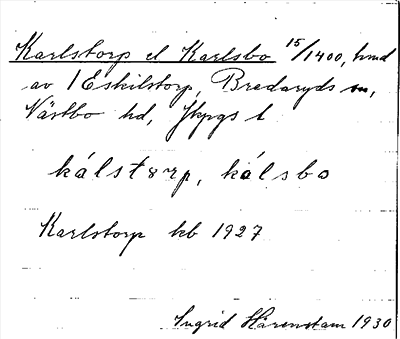 Karlstorp el Karlsbo 15/1400, hmd
av 1 Eskilstorp, Bredaryds sn,
Västbo hd, Jkpgs l
kálstɵrp, kálsbo
Karlstorp kb 1927
Ingrid Härenstam 1930